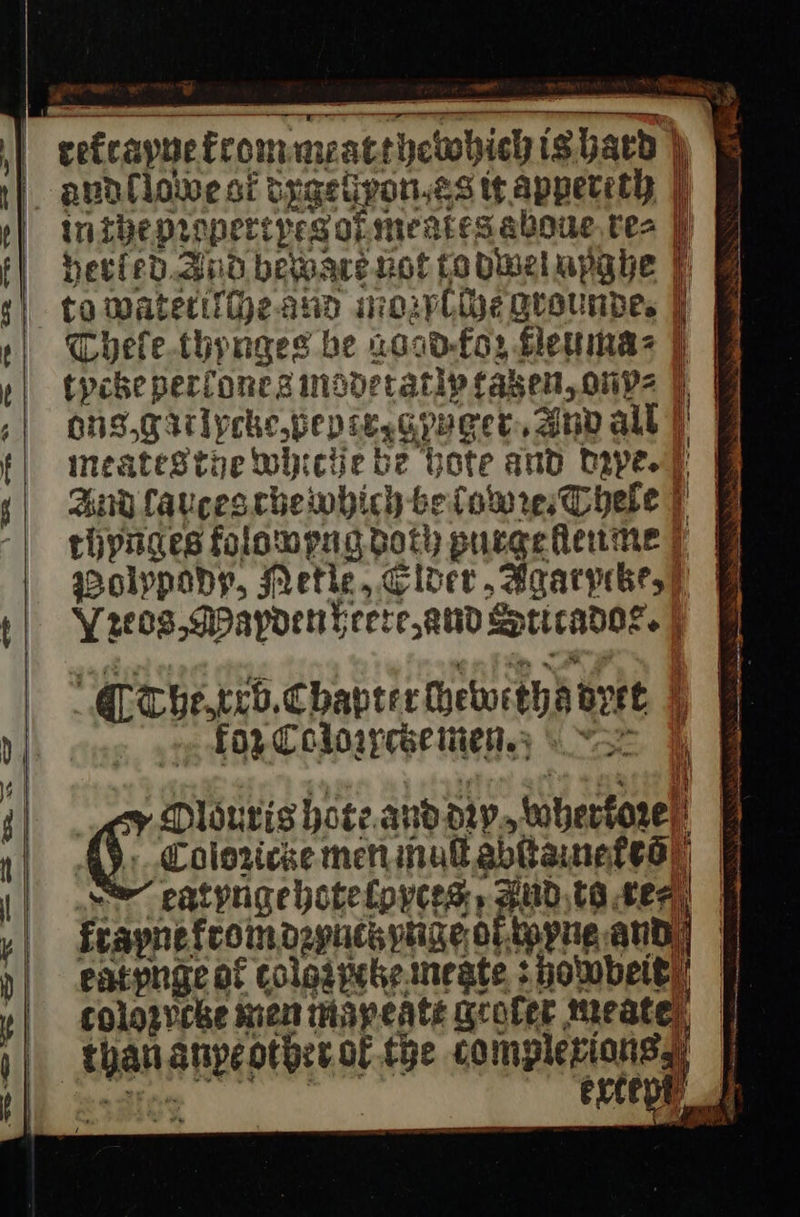 refrayne from meat the which is hard
and slowe of dygestyon, as it appereth
in the propertyes of meates aboue, re=
hersed. And beware not to dwel nyghe
to waterisshe and moryshe grounde.
These thynges be good for fleuma=
tycke persones moderatly taken, ony=
ons, garlycke, peper, gynger. And all
meates the whiche be hote and drye.
And sauces the which be sowre. These
thynges folowyng doth purge fleume
Polypody, Netle, Elder, Agarycke,
Yreos, Mayden heere, and Sticados.
¶ The .xxv. Chapter sheweth a dyet
for Colorycke men.
Colour is hote and dry, wherfore
Coloricke men must abstaine fro
eatynge hote spyces, And to re=
frayne from drynckynge of wyne and
eatynge of colorycke meate : howbeit
colorycke men may eate groser meate
than anye other of the complexions,
except